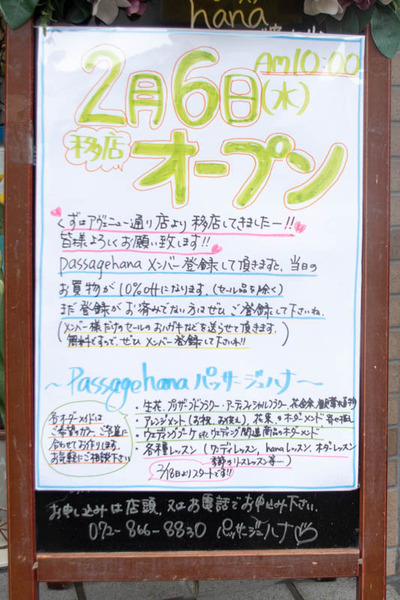 hana
AM10:00
2月6日(水)
移店 オープン
くずはアヴェニュー通り店より移店してきましたー!!
皆様よろしくお願い致します!!
passagehana メンバー登録して頂きますと、当日の
お買物が10%offになります。(セール品を除く)
まだ登録がお済みでない方はぜひご登録して下さいね。
(メンバー様だけのセールのおハガキなどを送らせて頂きます。)
無料ですので、ぜひメンバー登録して下さいね!!
~Passagehana パッサージュハナ~
・生花、プリザーブドフラワー・アーティフィシャルフラワー 花合来
・アレンジメント(お祝、お供え) 花束、のオーダーメンド
・ウェディングブーケ etc ウェディング関連商品のオーダーメンド
・各種レッスン(ワンディレッスン, hanaレッスン, オーダーレッスン
季節のリースレッスン等…)
2/18日よりスタートです!!
各オーダーメイドは
ご希望のカラー、ご予算に
合わせてお作りします。
お気軽にご相談下さい
お申し込みは店頭、又はお電話でお申込み下さい。
072-866-8830 パッサージュハナ